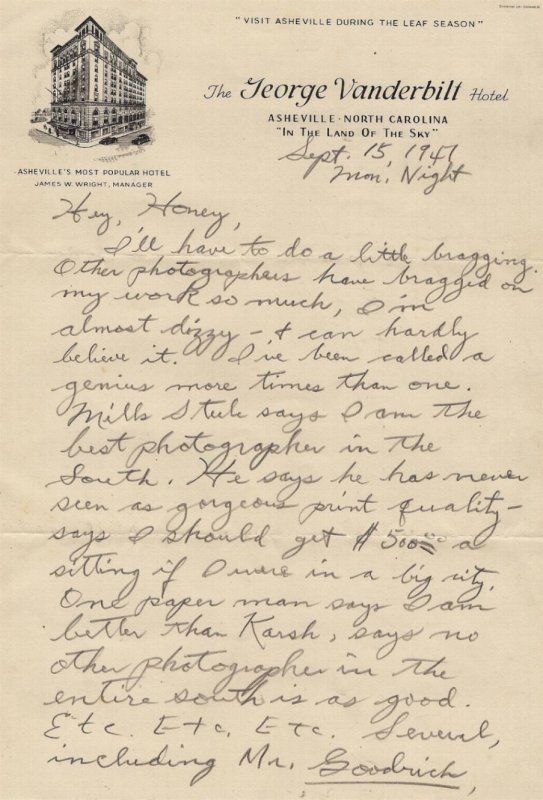 "VISIT ASHEVILLE DURING THE LEAF SEASON"
The George Vanderbilt Hotel
ASHEVILLE · NORTH CAROLINA
"IN THE LAND OF THE SKY"
ASHEVILLE'S MOST POPULAR HOTEL
JAMES W. WRIGHT, MANAGER
Sept. 15, 1947
Mon. Night
Hey, Honey,
I'll have to do a little bragging.
Other photographers have bragged on
my work so much, I'm
almost dizzy - & can hardly
believe it. I've been called a
genius more times than one.
Mills Steele says I am the
best photographer in the
South. He says he has never
seen as gorgeous print quality -
says I should get $500.00 a
sitting if I were in a big city.
One paper man says I am
better than Karsh, says no
other photographer in the
entire south is as good.
Etc. Etc, Etc. Several,
including Mr. Goodrich,